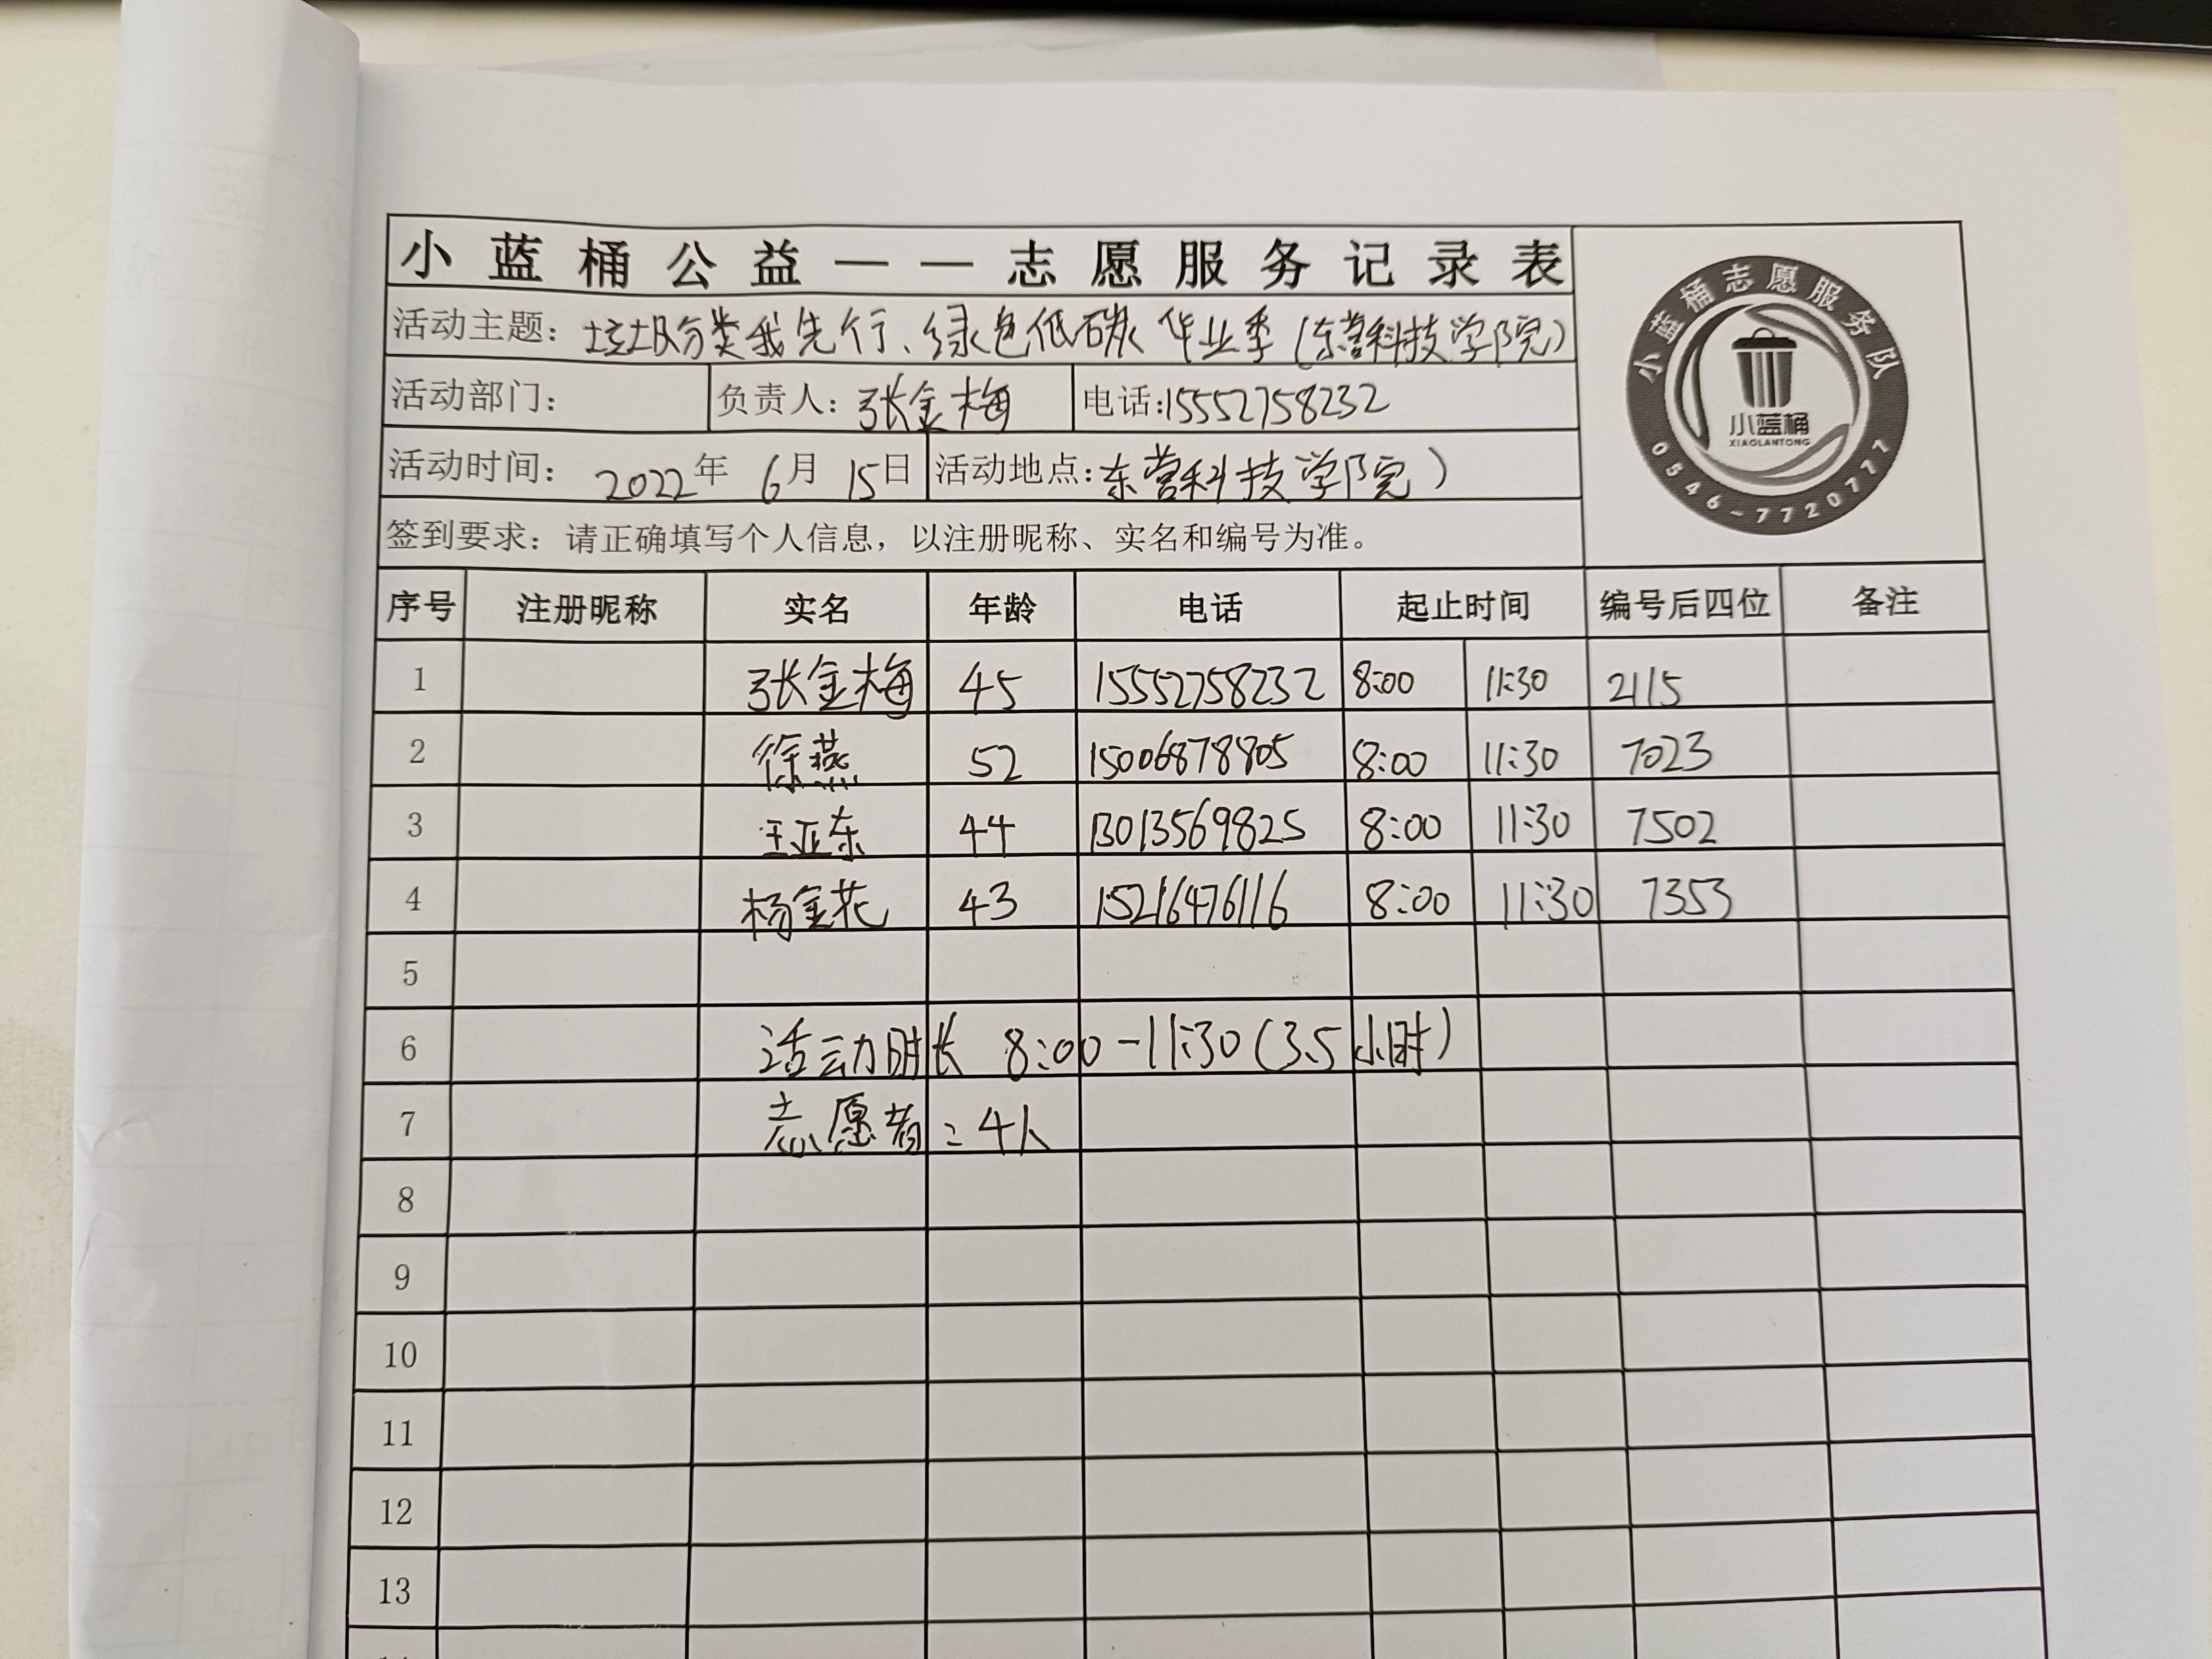 小蓝桶公益——志愿服务记录表
活动主题：垃圾分类我先行、绿色低碳毕业季（东营科技学院）
活动部门：	负责人：张金梅	电话:15552758232
活动时间：2022年 6月 15日	活动地点:东营科技学院）
签到要求：请正确填写个人信息，以注册昵称、实名和编号为准。
小蓝桶志愿服务队
小蓝桶
XIAOLANTONG
0546-7720777
序号	注册昵称	实名	年龄	电话	起止时间	编号后四位	备注
1	张金梅	45	15552758232	8:00	11:30	2115
2	徐燕	52	15006878805	8:00	11:30	7023
3	王亚东	44	13013569825	8:00	11:30	7502
4	杨金花	43	15216476116	8:00	11:30	7353
5
6	活动时长 8:00-11:30(3.5小时)
7	志愿者：4人
8
9
10
11
12
13